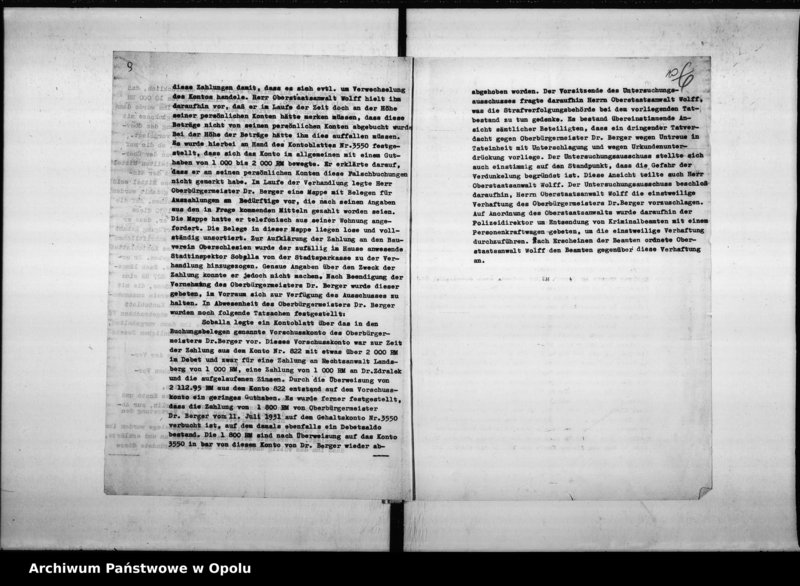 9
diese Zahlungen damit, dass es sich evtl. um Verwechselung
des Kontos handele. Herr Oberstaatsanwalt Wolff hielt ihm
daraufhin vor, daß er im Laufe der Zeit doch an der Höhe
seiner persönlichen Konten hätte merken müssen, dass diese
Beträge nicht von seinen persönlichen Konten abgebucht wurde
Bei der Höhe der Beträge hätte ihm dies auffallen müssen.
Es wurde hierbei an Hand des Kontoblattes Nr.3550 festge-
stellt, dass sich das Konto im allgemeinen mit einem Gut-
haben von 1 000 bis 2 000 RM bewegte. Er erklärte darauf,
dass er an seinen persönlichen Konten diese Falschbuchungen
nicht gemerkt habe. Im Laufe der Verhandlung legte Herr
Oberbürgermeister Dr. Berger eine Mappe mit Belegen für
Auszahlungen an Bedürftige vor, die nach seinen Angaben
aus den in Frage kommenden Mitteln gezahlt worden seien.
Die Mappe hatte er telefonisch aus seiner Wohnung ange-
fordert. Die Belege in dieser Mappe liegen lose und voll-
ständig unsortiert. Zur Aufklärung der Zahlung an den Bau-
verein Oberschlesien wurde der zufällig im Hause anwesende
Stadtinspektor Soballa von der Stadtsparkasse zu der Ver-
handlung hinzugezogen. Genaue Angaben über den Zweck der
Zahlung konnte er jedoch nicht machen. Nach Beendigung der
Vernehmung des Oberbürgermeisters Dr. Berger wurde dieser
gebeten, im Vorraum sich zur Verfügung des Ausschusses zu
halten. In Abwesenheit des Oberbürgermeisters Dr. Berger
wurden noch folgende Tatsachen festgestellt:
Soballa legte ein Kontoblatt über das in den
Buchungsbelegen genannte Vorschusskonto des Oberbürger-
meisters Dr.Berger vor. Dieses Vorschusskonto war zur Zeit
der Zahlung aus dem Konto Nr. 822 mit etwas über 2 000 RM
im Debet und zwar für eine Zahlung an Rechtsanwalt Lands-
berg von 1 000 RM, eine Zahlung von 1 000 RM an Dr.Zdralek
und die aufgelaufenen Zinsen. Durch die Überweisung von
2 112.95 RM aus dem Konto 822 entstand auf dem Vorschuss-
konto ein geringes Guthaben. Es wurde ferner festgestellt,
dass die Zahlung von 1 800 RM von Oberbürgermeister
Dr. Berger vom 11. Juli 1931 auf dem Gehaltskonto Nr.3550
verbucht ist, auf dem damals ebenfalls ein Debetsaldo
bestand. Die 1 800 RM sind nach Überweisung auf das Konto
3550 in bar von diesem Konto von Dr. Berger wieder ab-
10
6
abgehoben worden. Der Vorsitzende des Untersuchungs-
ausschusses fragte daraufhin Herrn Oberstaatsanwalt Wolff,
was die Strafverfolgungsbehörde bei dem vorliegenden Tat-
bestand zu tun gedenke. Es bestand übereinstimmende An-
sicht sämtlicher Beteiligten, dass ein dringender Tatver-
dacht gegen Oberbürgermeister Dr. Berger wegen Untreue in
Tateinheit mit Unterschlagung und wegen Urkundenunter-
drückung vorliege. Der Untersuchungsausschuss stellte sich
auch einstimmig auf den Standpunkt, dass die Gefahr der
Verdunkelung begründet ist. Diese Ansicht teilte auch Herr
Oberstaatsanwalt Wolff. Der Untersuchungsausschuss beschloß
daraufhin, Herrn Oberstaatsanwalt Wolff die einstweilige
Verhaftung des Oberbürgermeisters Dr.Berger vorzuschlagen.
Auf Anordnung des Oberstaatsanwalts wurde daraufhin der
Polizeidirektor um Entsendung von Kriminalbeamten mit einem
Personenkraftwagen gebeten, um die einstweilige Verhaftung
durchzuführen. Nach Erscheinen der Beamten ordnete Ober-
staatsanwalt Wolff den Beamten gegenüber diese Verhaftung
an.
Archiwum Państwowe w Opolu